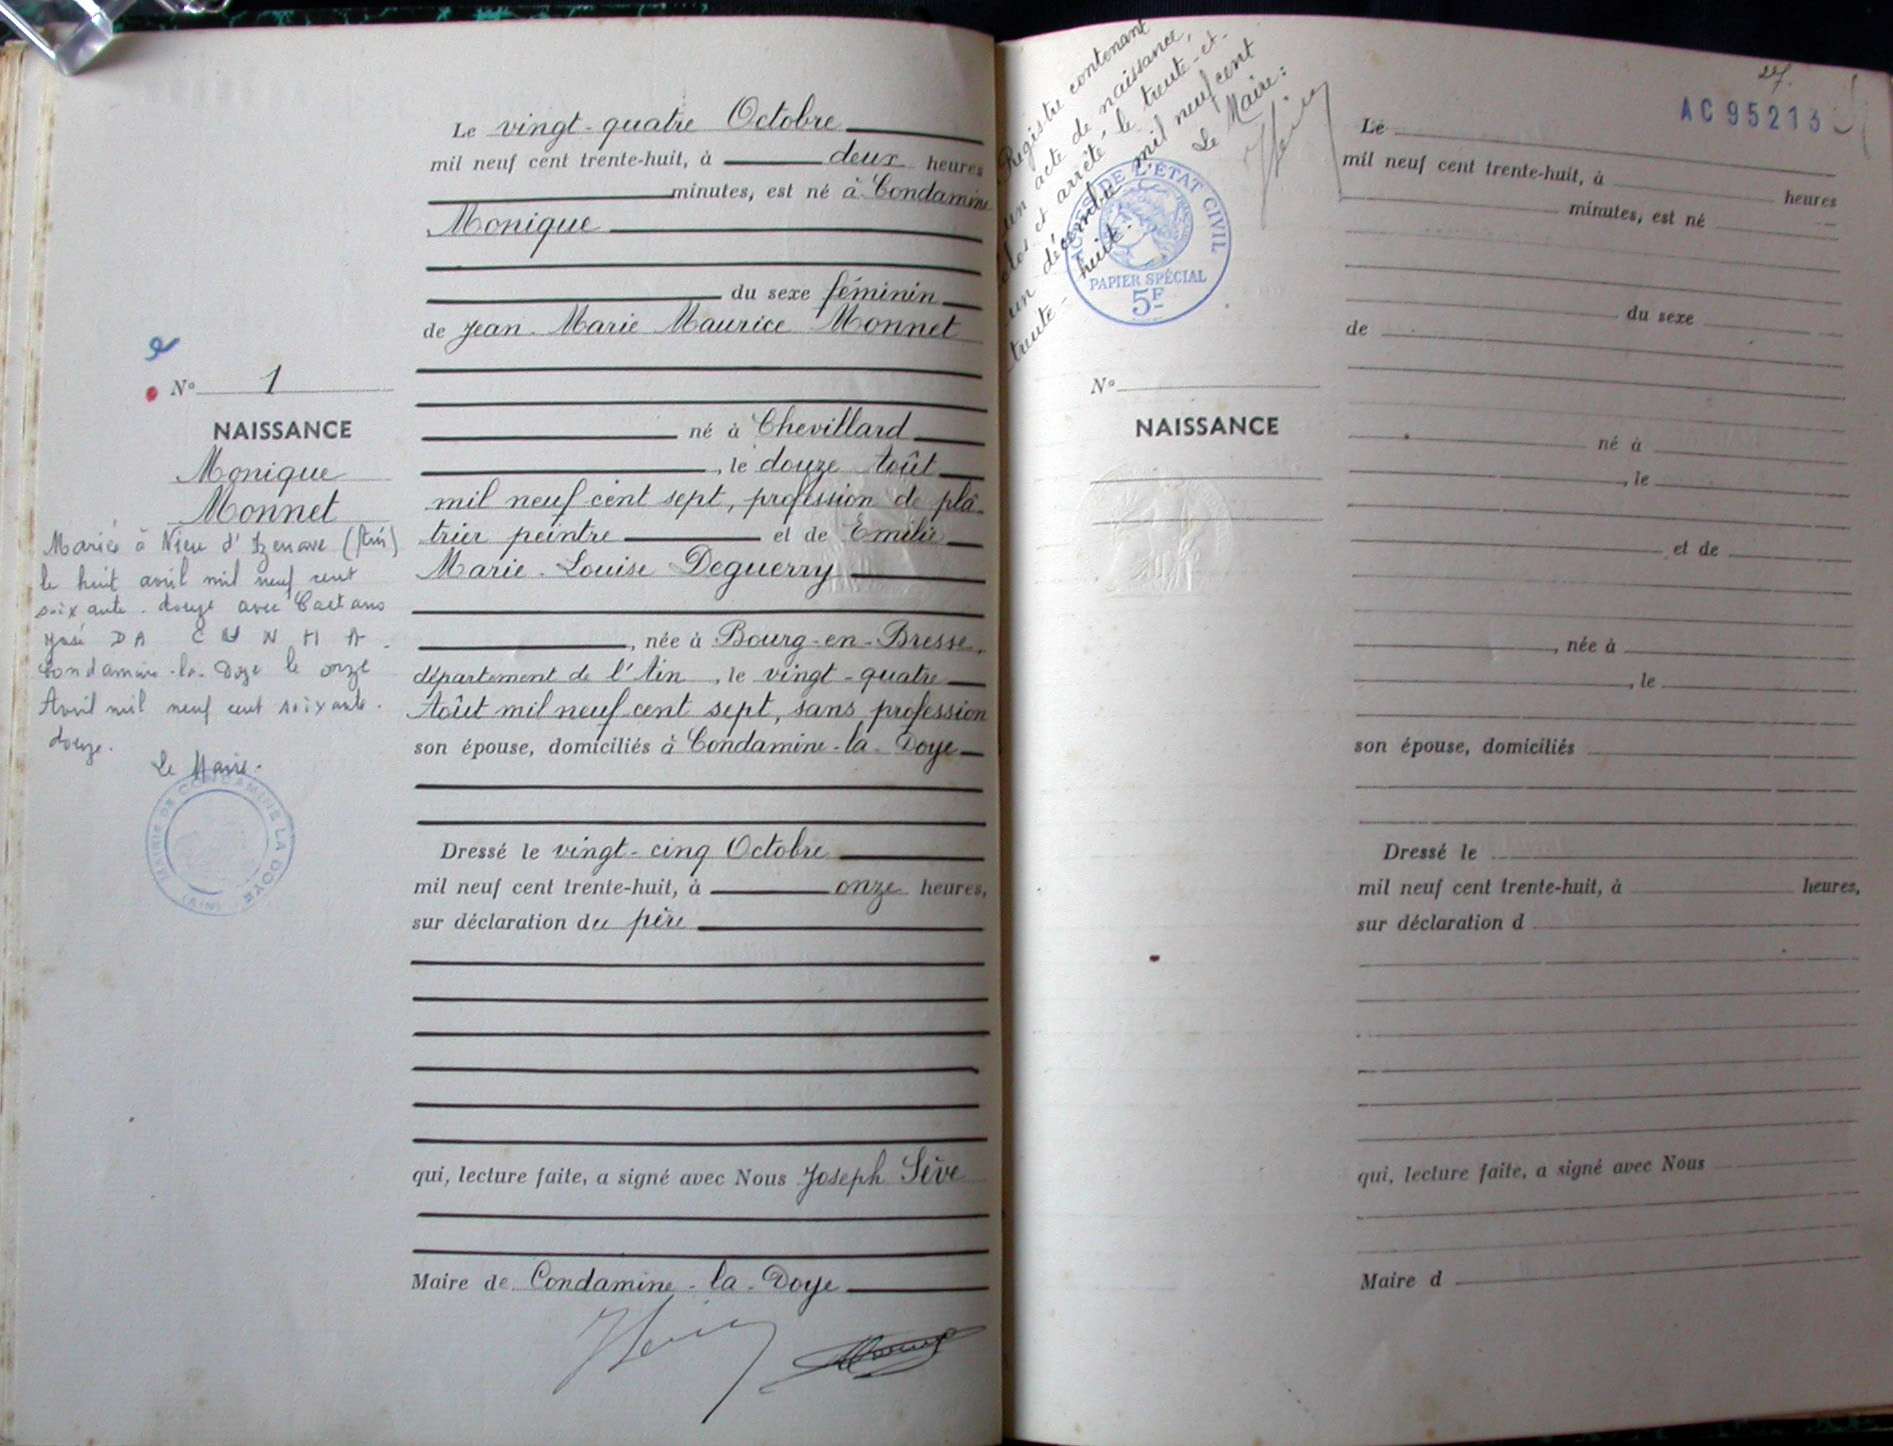 Le vingt-quatre Octobre
mil neuf cent trente-huit, à deux heures
minutes, est né à Condamine
Monique
du sexe féminin
de Jean-Marie Maurice Monnet
né à Chevillard
, le douze Août
mil neuf cent sept, profession de plâ-
trier peintre et de Emilie
Marie-Louise Deguerry
, née à Bourg-en-Bresse,
département de l'Ain, le vingt-quatre
Août mil neuf cent sept, sans profession
son épouse, domiciliés à Condamine-la-Doye
Dressé le vingt-cinq Octobre
mil neuf cent trente-huit, à onze heures,
sur déclaration du père
qui, lecture faite, a signé avec Nous Joseph Sève
Maire de Condamine-la-Doye
No 1
NAISSANCE
Monique
Monnet
Mariée à Vieu d'Izenave (Ain)
le huit avril mil neuf cent
soixante-douze avec Caetano
José DA CUNHA.
Condamine-la-Doye le onze
Avril mil neuf cent soixante-
douze.
Le Maire.
MAIRIE DE CONDAMINE LA DOYE
(AIN)
Registre contenant
un acte de naissance,
clos et arrêté le trente-et-
un décembre mil neuf cent
trente-huit.
Le Maire:
DE L'ÉTAT CIVIL
PAPIER SPÉCIAL
5F
27.
AC 95213
Le
mil neuf cent trente-huit, à heures
minutes, est né
du sexe
de
né à
, le
et de
, née à
, le
son épouse, domiciliés
Dressé le
mil neuf cent trente-huit, à heures,
sur déclaration d
qui, lecture faite, a signé avec Nous
Maire d
No
NAISSANCE